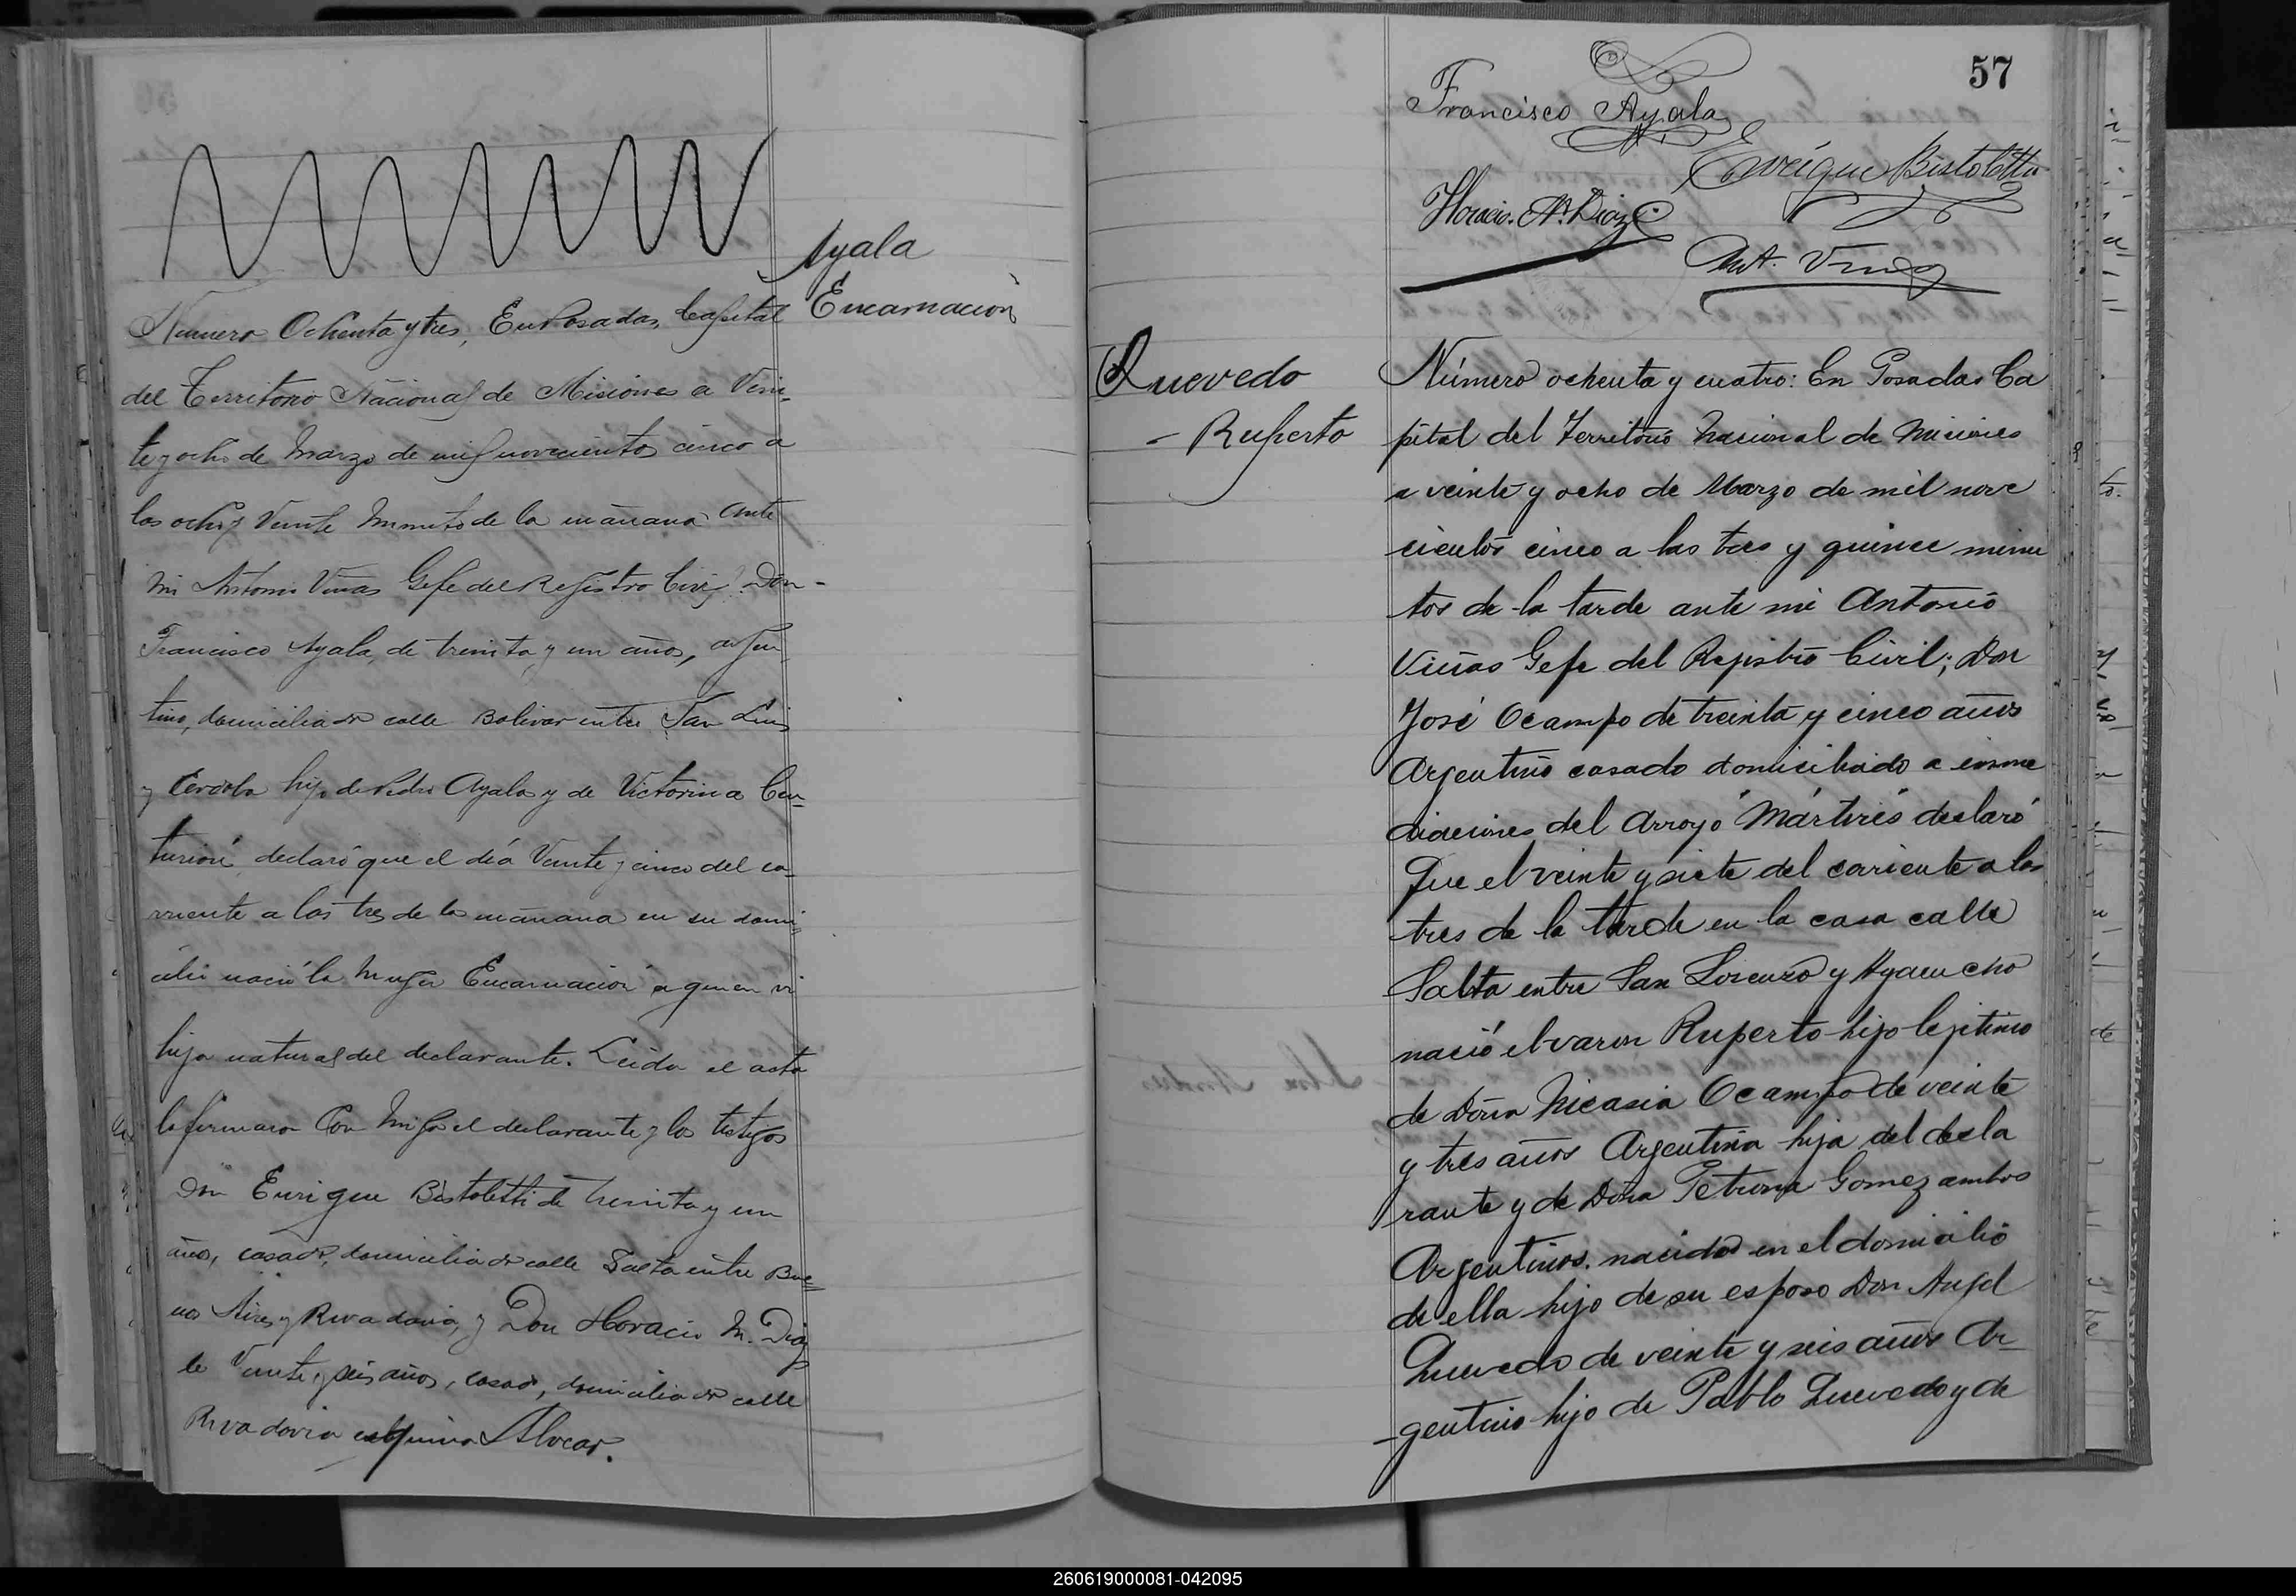 Ayala
Encarnación
Numero Ochenta y tres, En Posadas, Capital
del Territorio Nacional de Misiones a Vein-
te y ocho de Marzo de mil novecientos cinco a
las ocho y Veinte Minutos de la mañana ante
mi Antonio Viñas Gefe del Registro Civil: Don
Francisco Ayala, de treinta y un años, argen
tino, domiciliado calle Bolivar entre San Luis
y Cordoba hijo de Pedro Ayala y de Victorina Cen-
turión, declaró que el día Veinte y cinco del co-
rriente a las tres de la mañana en su domi-
cilio nació la Muger Encarnación a quien vi
hija natural del declarante. Leida el acta
la firmaron Con Migo el declarante y los testigos
Don Enrique Bistoletti de treinta y un
años, casado, domiciliado calle Salta entre Bue-
nos Aires y Rivadavia, y Don Horacio M. Diaz
de Veinte y seis años, casado, domiciliado calle
Rivadavia esquina Alvear.
57
Francisco Ayala
Enrique Bistoletti
Horacio M. Diaz
Ant. Viñas
Quevedo
- Ruperto
Número ochenta y cuatro: En Posadas Ca
pital del Territorio Nacional de Misiones
a veinte y ocho de Marzo de mil nove
cientos cinco a las tres y quince minu
tos de la tarde ante mi Antonio
Viñas Gefe del Registro Civil; Don
José Ocampo de treinta y cinco años
Argentino casado domiciliado a inme
diaciones del Arroyo Mártires declaró
Que el veinte y siete del corriente a las
tres de la tarde en la casa calle
Salta entre San Lorenzo y Ayacucho
nació el varon Ruperto hijo lejitimo
de Doña Nicasia Ocampo de veinte
y tres años Argentina hija del decla
rante y de Doña Petrona Gomez ambos
Argentinos. nacido en el domicilio
de ella hijo de su esposo Don Angel
Quevedo de veinte y seis años Ar-
-gentino hijo de Pablo Quevedo y de
260619000081-042095